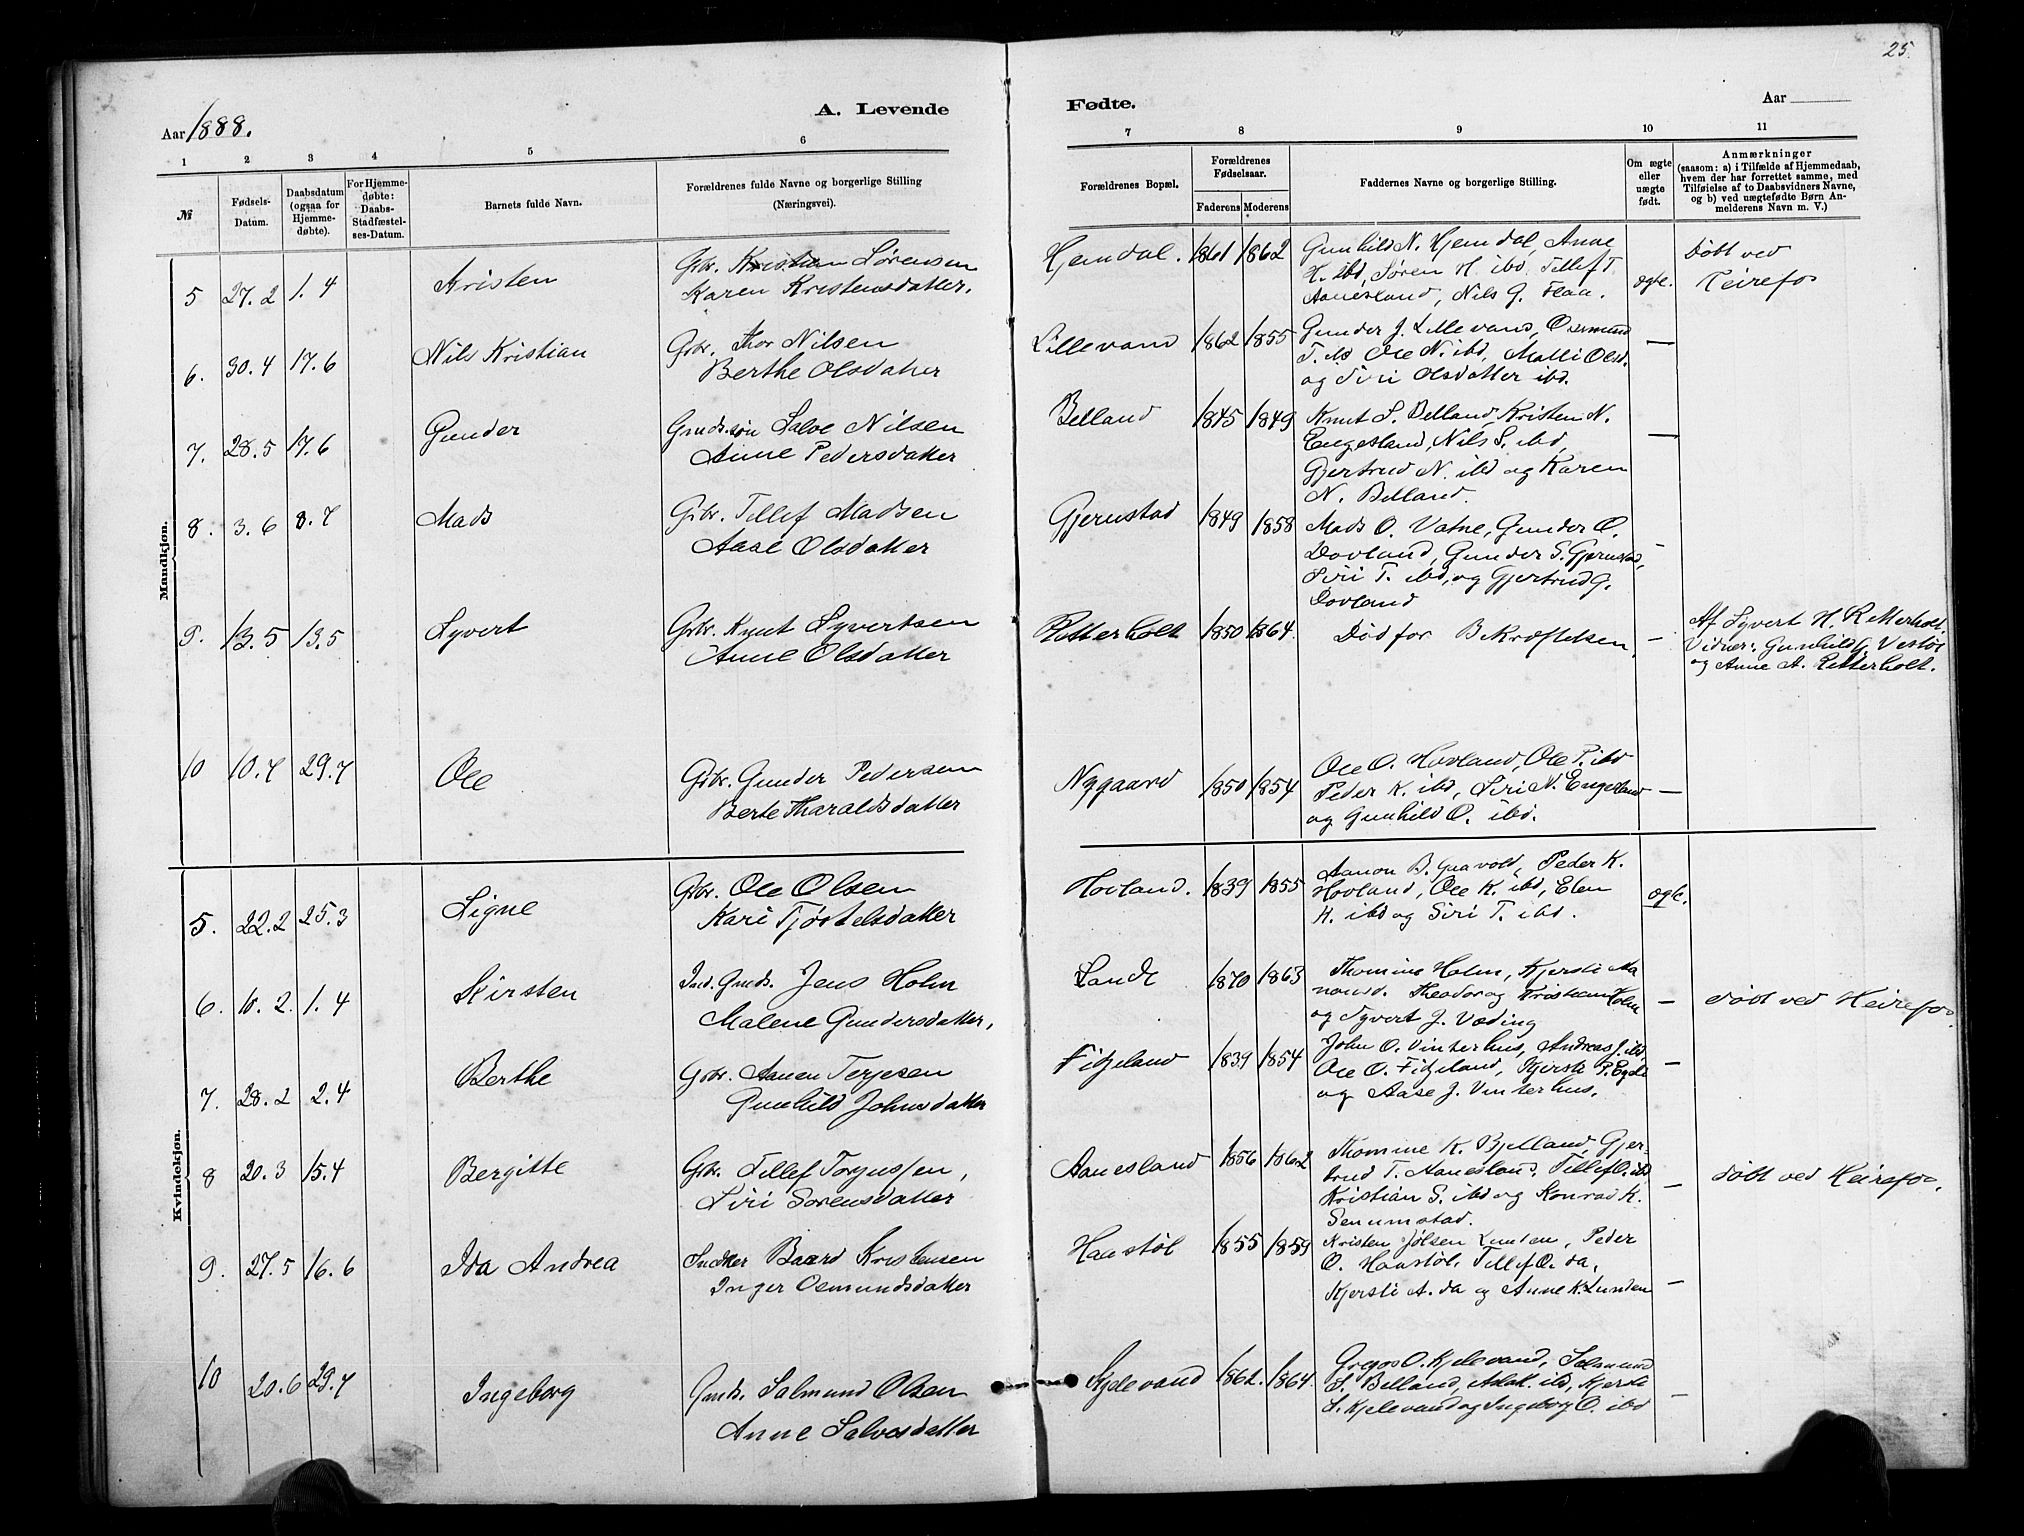 25.
Aar 1888.
A. Levende
Fødte.
Aar
1 2 3 4 5 6
7 8 9 10 11
№
Fødsels-Datum.
Daabsdatum (ogsaa for Hjemme-døbte).
For Hjemme-døbte: Daabs-Stadfæstel-ses-Datum.
Barnets fulde Navn.
Forældrenes fulde Navne og borgerlige Stilling
(Næringsvei).
Forældrenes Bopæl.
Forældrenes Fødselsaar.
Faderens Moderens
Faddernes Navne og borgerlige Stilling.
Om ægte eller uægte født.
Anmærkninger
(saasom: a) i Tilfælde af Hjemmedaab,
hvem der har forrettet samme, med
Tilføielse af to Daabsvidners Navne,
og b) ved uægtefødte Børn An-
melderens Navn m. V.)
Mandkjøn.
5 27.2 1.4 Kristen
Gbr. Kristian Sørensen
Karen Kristensdatter.
Hjemdal. 1861 1862
Gunhild N. Hjemdal, Anne
H. ibd, Søren H. ibd, Tellef T.
Aanesland, Nils G. Flaa.
ægte.
Døbt ved
Heirefos
6. 30.4 17.6 Nils Kristian
Gbr. Thor Nilsen
Berthe Olsdatter
Lillevand 1862 1855
Gunder J. Lillevand, Osmund
T. ibd Ole N. ibd, Malli Olsd.
og Siri Olsdatter ibd.
—
7. 28.5 17.6 Gunder
Gmds.søn Salve Nilsen
Anne Pedersdatter
Belland 1845 1849
Knut S. Belland, Kristen N.
Engesland, Nils S. ibd,
Gjertrud N. ibd og Karen
N. Belland.
—
8. 3.6 8.7 Mads
Gbr. Tellef Madsen
Aase Olsdatter
Gjernstad 1849 1858
Mads O. Vatne, Gunder O.
Dovland, Gunder S. Gjernstad,
Siri T. ibd, og Gjertrud G.
Dovland
—
9. 13.5 13.5 Syvert
Gbr. Knut Syvertsen
Anne Olsdatter
Retterholt 1850 1864.
Død for Bekræftelsen,
—
Af Syvert H. Retterholt.
Vidner: Gunhild G. Vestøl
og Anne A. Retterholt.
10 10.7 29.7 Ole
Gbr. Gunder Pedersen
Berte Tharaldsdatter
Nygaard 1850 1854
Ole O. Hovland, Ole P. ibd
Peder K. ibd, Siri N. Engesland
og Gunhild O. ibd.
—
Kvindekjøn.
5. 22.2 25.3 Signe
Gbr. Ole Olsen
Kari Tjøstelsdatter
Hovland. 1839 1855
Aanon B. Graavold, Peder K.
Hovland, Ole K. ibd, Elen
K. ibd og Siri T. ibd.
ægte.
6. 10.2. 1.4 Kirsten
Ind. Gmds. Jens Holm
Malene Gundersdatter,
Sande 1870 1863
Thomine Holm, Kjersti Aa
nonsd. Theodor og Kristian Holm
og Syvert J. Væding
—
døbt ved Heirefos.
7. 28.2 2.4 Berthe
Gbr. Aanen Terjesen
Gunhild Johnsdatter
Fidjeland 1839 1854
John O. Vinterhus, Andreas J. ibd,
Ole O. Fidjeland, Kjersti P. Egde
og Aase J. Vinterhus.
—
8 20.3 15.4 Bergitte
Gbr. Tellef Torjussen,
Siri Sorensdatter
Aanesland 1856 1862
Thomine K. Bjelland, Gjer-
trud T. Aanesland. Tellef O. ibd
Kristian S. ibd og Konrad K.
Senumstad.
—
døbt ved Heirefos.
9. 27.5 16.6 Ida Andrea
Indker Baard Kristensen
Inger Osmundsdatter
Haustøl 1855 1859
Kristen Jølsen Lunden, Peder
O. Haustøl. Tellef O. da,
Kjersti A. da og Anne K. Lunden
—
10 20.6 29.7 Ingeborg
Gmds. Salmund Olsen
Anne Salvesdatter
Kjelevand 1862. 1864.
Gregos O. Kjelevand, Salmund
S. Belland, Aslak. ibd, Kjerste
S. Kjelevand og Ingeborg O. ibd
—